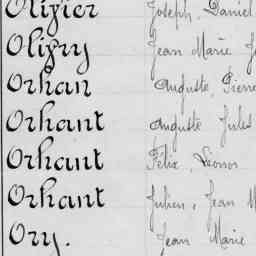 Olivier Joseph, Daniel
Oliyry Jean Marie
Orhan Auguste, Pierre
Orhant Auguste Jules
Orhant Félix, Léonor
Orhant Julien, Jean M
Ory. Jean Marie